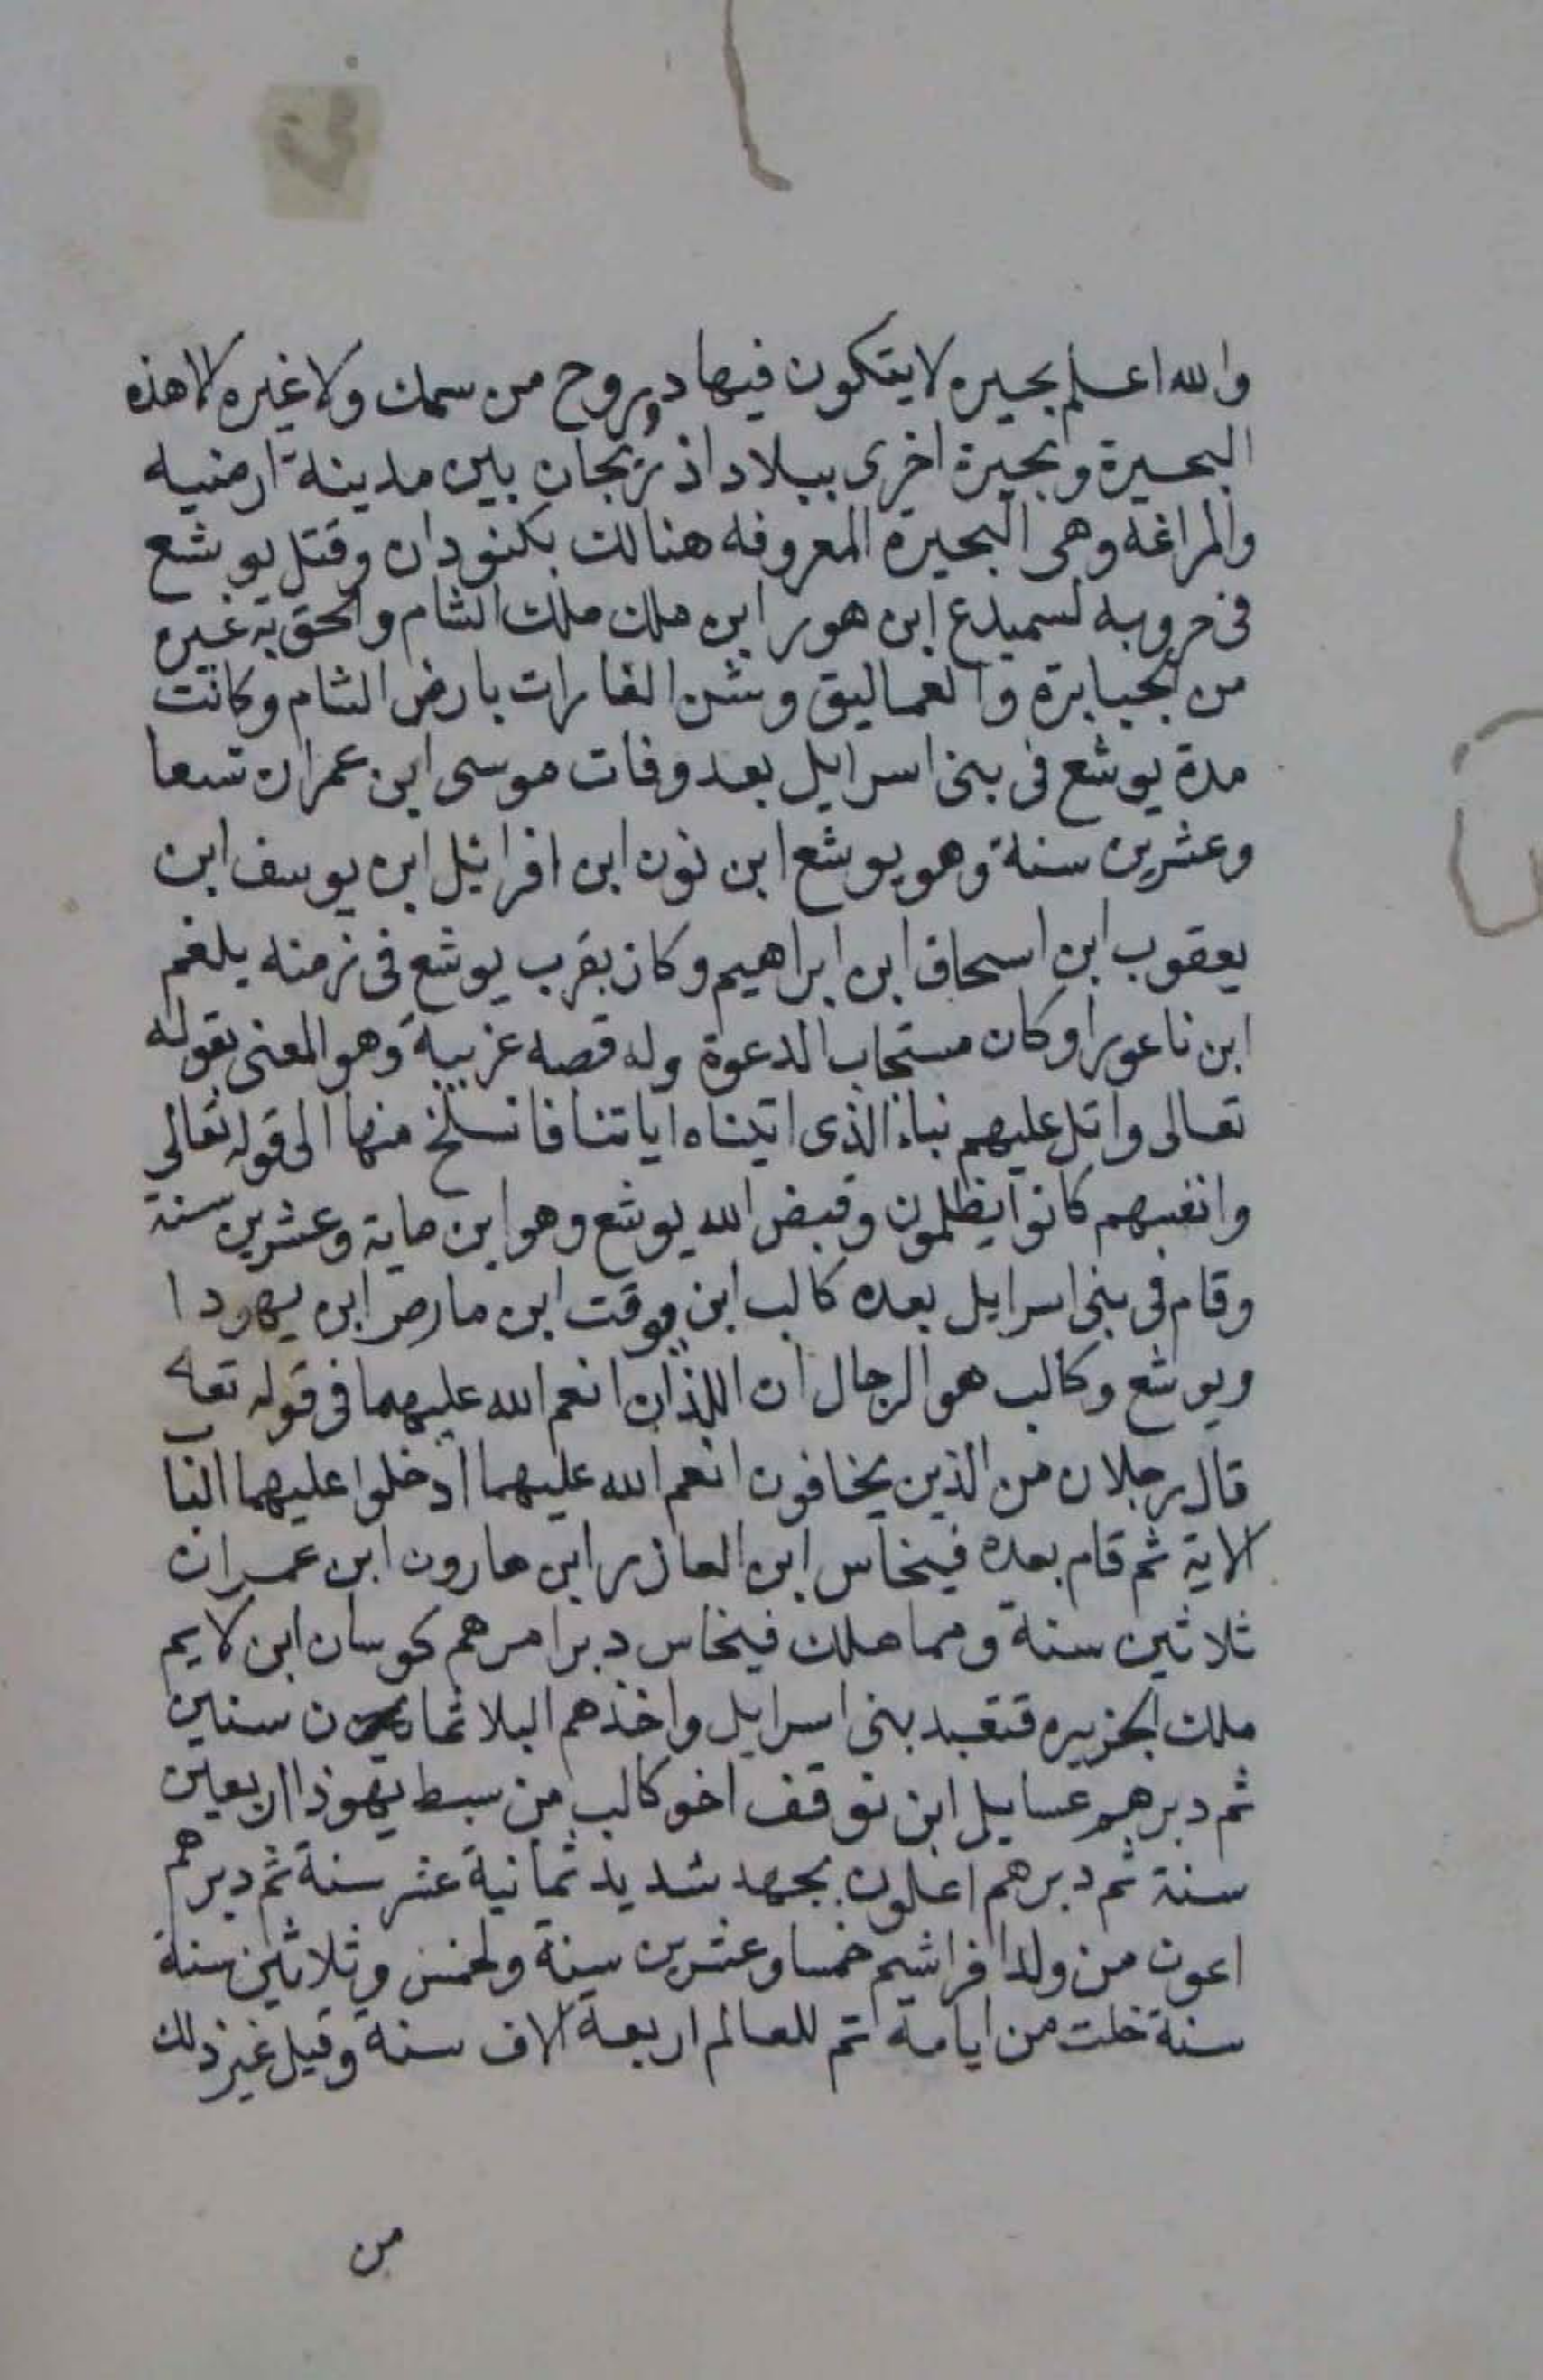 والله اعلم بحيره لا يتكون فيها دوروح من سمك ولا غيره لا هذه
البحيرة وبحيرة اخرى ببلاد اذربجان بين مدينة ارمنيه
والمراغه وهى البحيرة المعروفه هنالك بكنودان وقتل يوشع
فى حروبه لسميدع ابن هوبر ابن ملك ملك الشام والحق به غيره
من الجبابرة والعماليق وشن الغارات بارض الشام وكانت
مدة يوشع فى بنى اسرايل بعد وفات موسى ابن عمران تسعا
وعشرين سنة وهو يوشع ابن نون ابن افرائيل ابن يوسف ابن
يعقوب ابن اسحاق ابن ابراهيم وكان بقرب يوشع فى زمنه بلعم
ابن ناعورا وكان مستجاب الدعوة وله قصه غريبة وهو المعنى بقوله
تعالى واتل عليهم نباء الذى اتيناه اياتنا فانسلخ منها الى قوله تعالى
وانفسهم كانوا يظلمون وقبض الله يوشع وهو ابن ماية وعشرين سنة
وقام فى بنى اسرايل بعده كالب ابن يوقت ابن مارص ابن يهودا
ويوشع وكالب هو الرجال ان اللذان انعم الله عليهما فى قوله تعا
قال رجلان من الذين يخافون انعم الله عليهما ادخلوا عليهما الباب
الاية ثم قام بعده فينحاس ابن العازر ابن هارون ابن عمران
ثلاثين سنة ومما هلك فينحاس دبر امرهم كوسان ابن لايم
ملك الجزيره فتعبد بنى اسرايل واخذهم البلا ثمان سنين
ثم دبرهم عسايل ابن نوقف اخو كالب من سبط يهوذا اربعين
سنة ثم دبرهم اعلون بجهد شديد ثمانية عشر سنة ثم دبرهم
اعون من ولد افراشيم خمسا وعشرين سنة ولخمس وثلاثين سنة
سنة خلت من ايامه تم للعالم اربعة الاف سنة وقيل غير ذلك
من